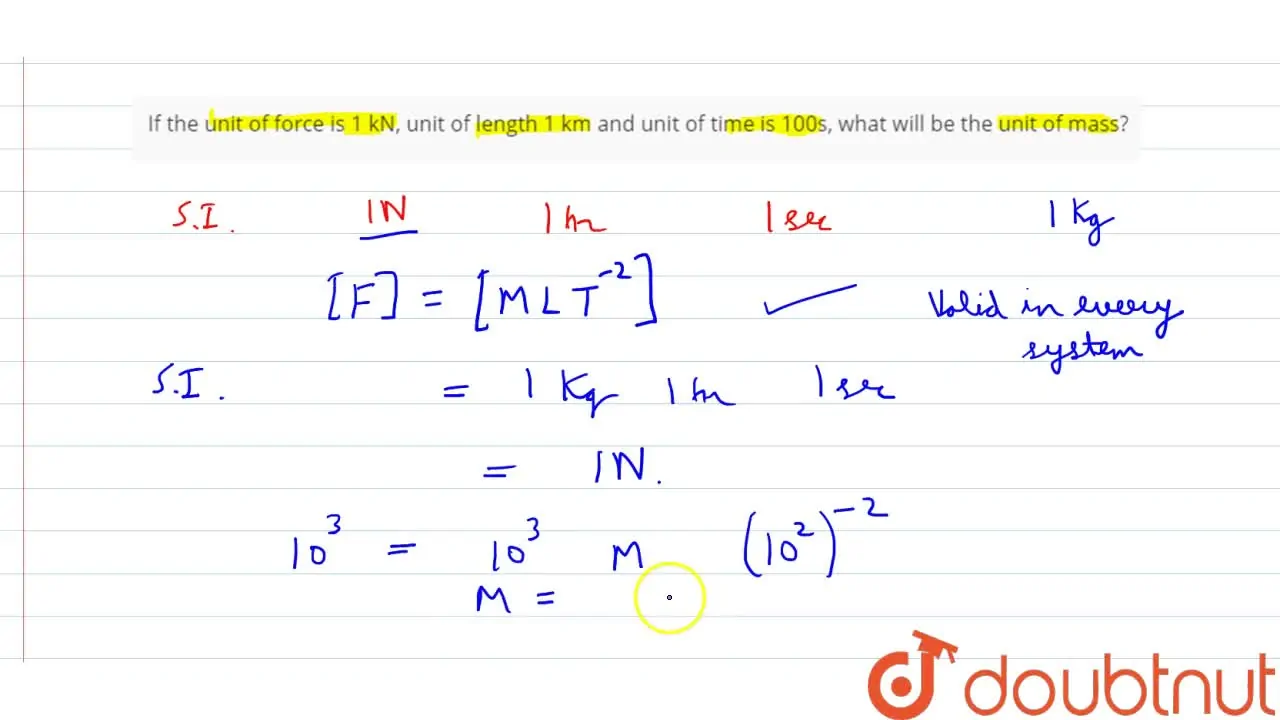 If the unit of force is 1 kN, unit of length 1 km and unit of time is 100s, what will be the unit of mass?
S.I. 1N 1m 1 sec 1 Kg
[F] = [M L T⁻²] Valid in every
system
S.I. = 1 Kg 1m 1 sec
= 1N.
10³ = 10³ M (10²)⁻²
M =
doubtnut